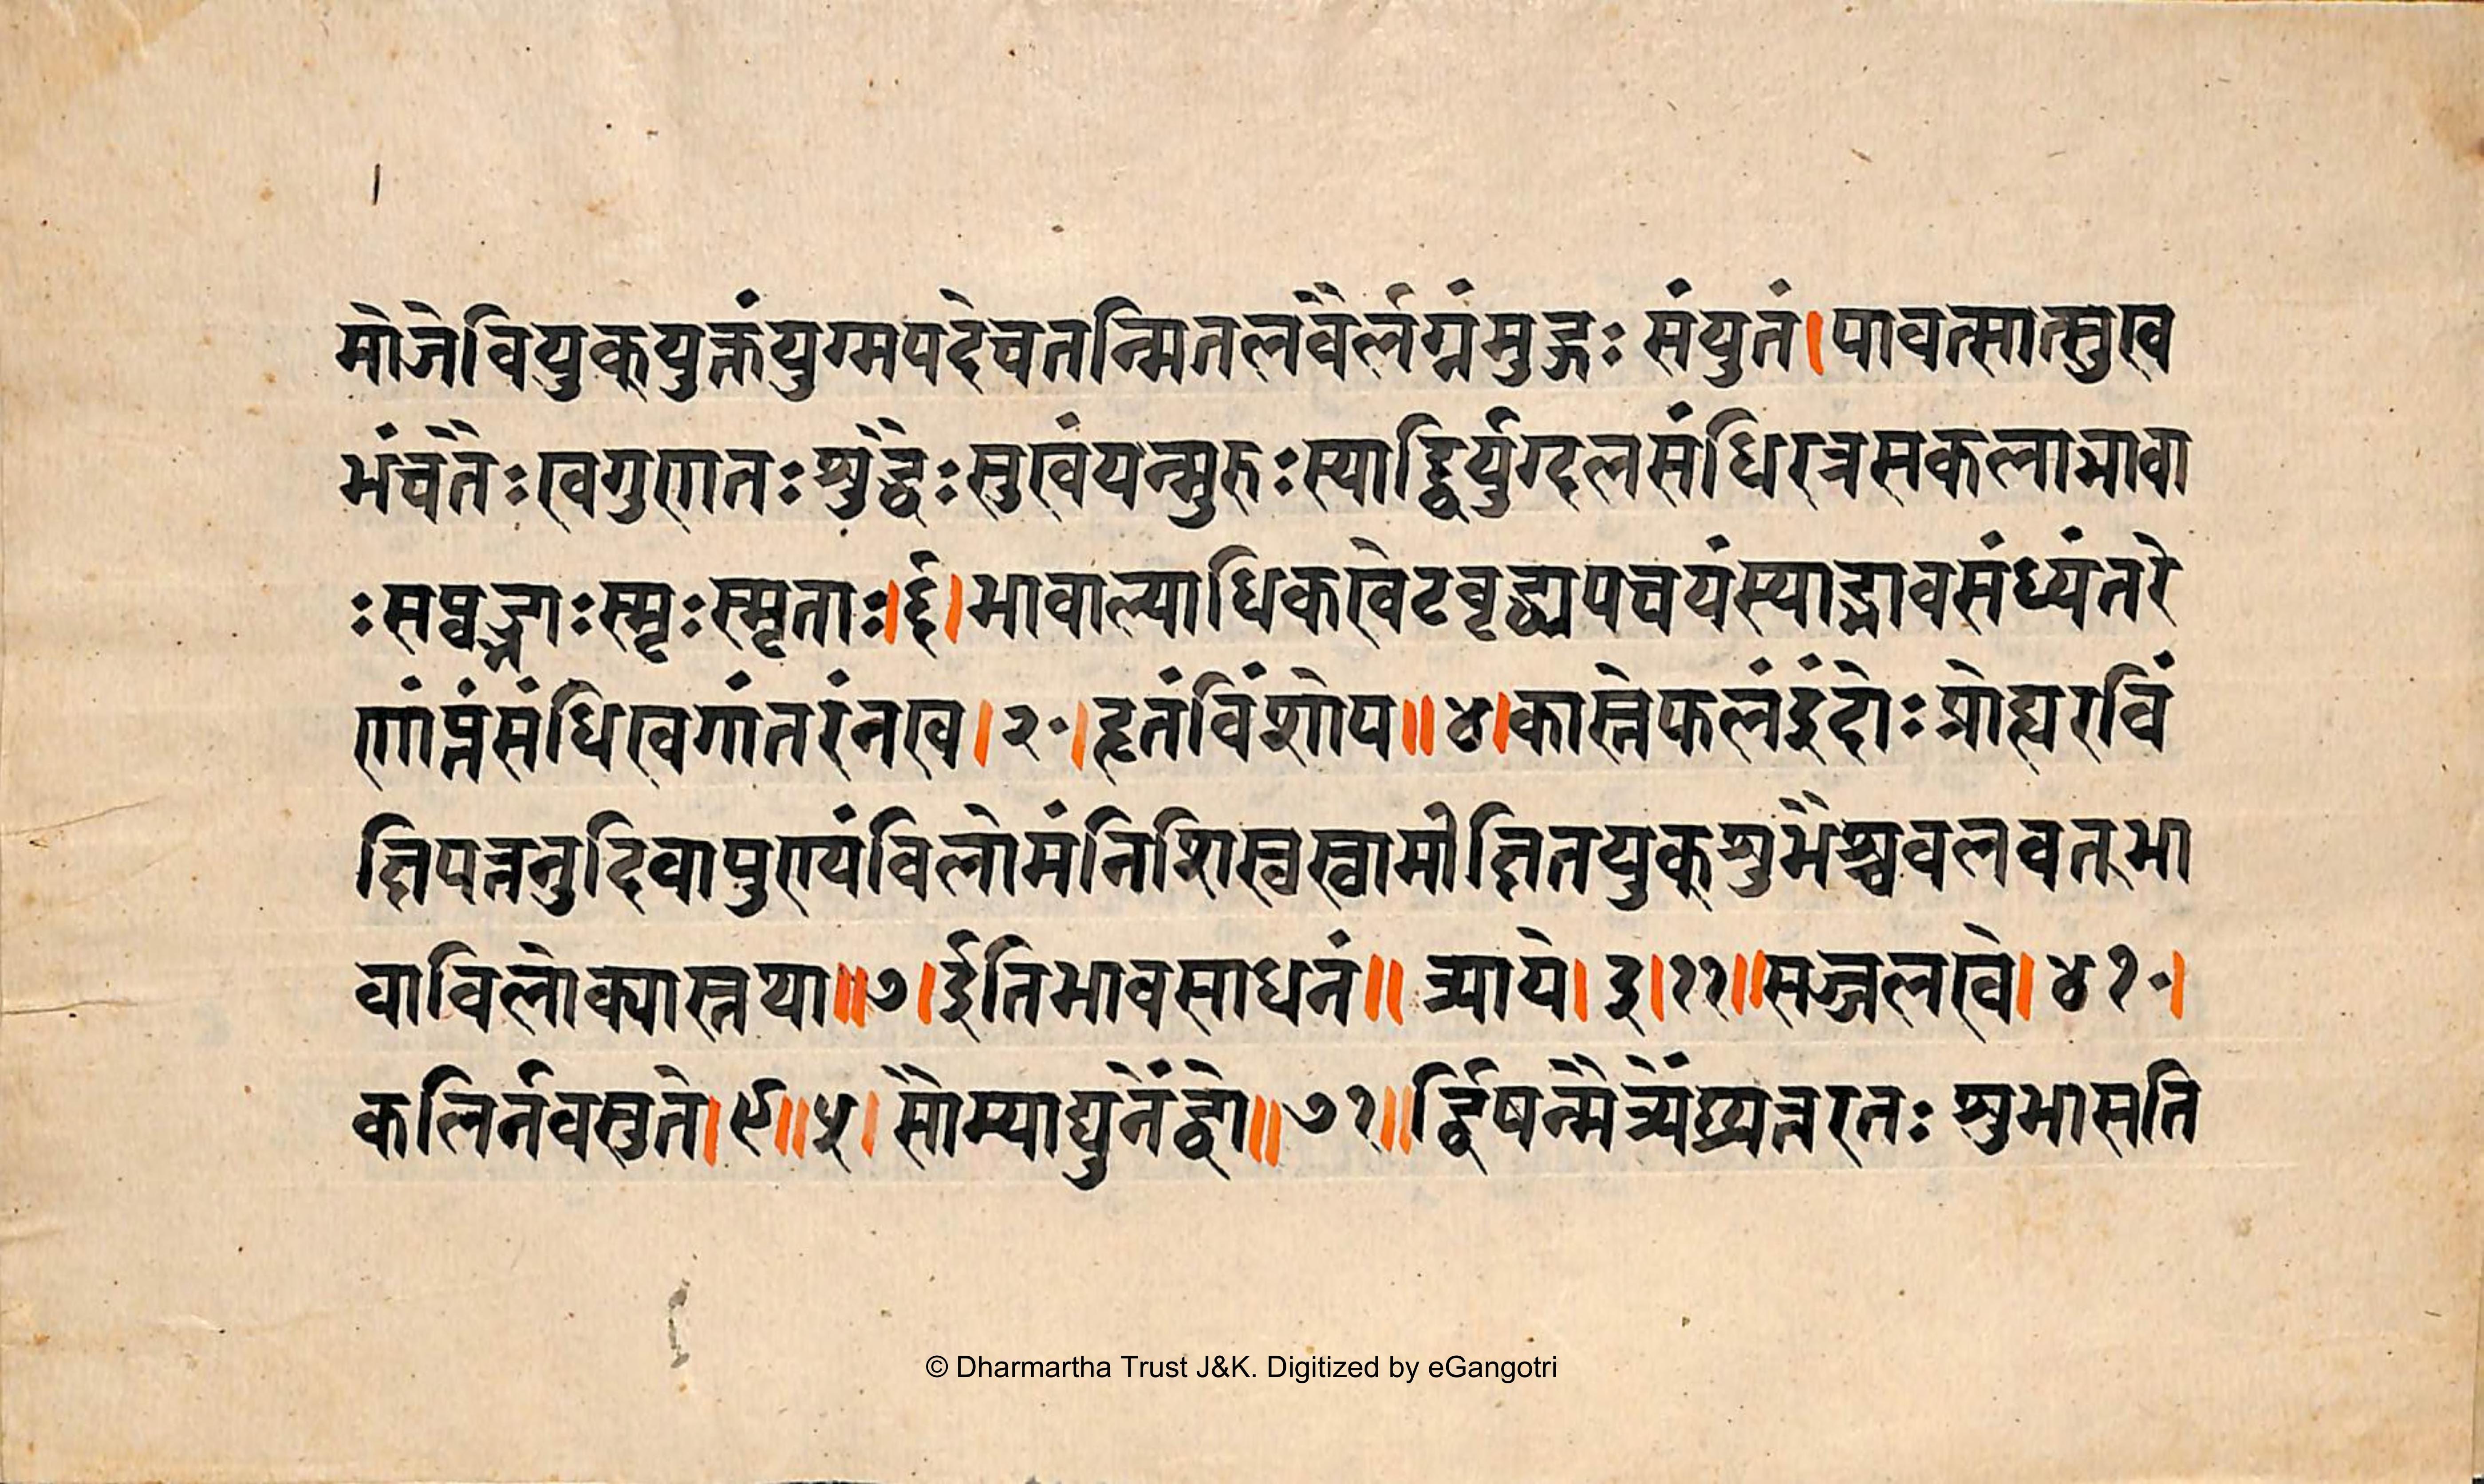 मोजेवियुक्युक्तंयुग्मपदेचतन्मितलवैर्लग्नंमुङ्गः संयुतं।पावत्सात्सुख
भंचतैःखगुणतःशुद्धैःसुखंयन्मुहुःस्याद्द्विर्युग्दलसंधिरत्रसकलाभावा
ःसषङ्भाःस्मृःस्मृताः।६।भावाल्याधिकखेटवृद्ध्यपचयंस्याद्भावसंध्यंतरे
णांघ्नंसंधिखगांतरंनख।२०।हृतंविंशोप॥४।कास्त्रेफलंइंदोःप्रोह्यरविं
त्तिपत्तनुदिवापुण्यंविलोमंनिशिस्वस्वामीत्तितयुक्शुभैश्चवलवत्भा
वाविलोक्यास्तथा॥७।ईतिभावसाधनं॥ त्र्याये।३।११॥सज्जलखे।४१०।
कलिर्नवसुते।९॥५।सौम्याद्युनेंद्वो॥७१॥र्द्विषन्मैत्र्यैंप्रयत्नरतः शुभासति
© Dharmartha Trust J&K. Digitized by eGangotri